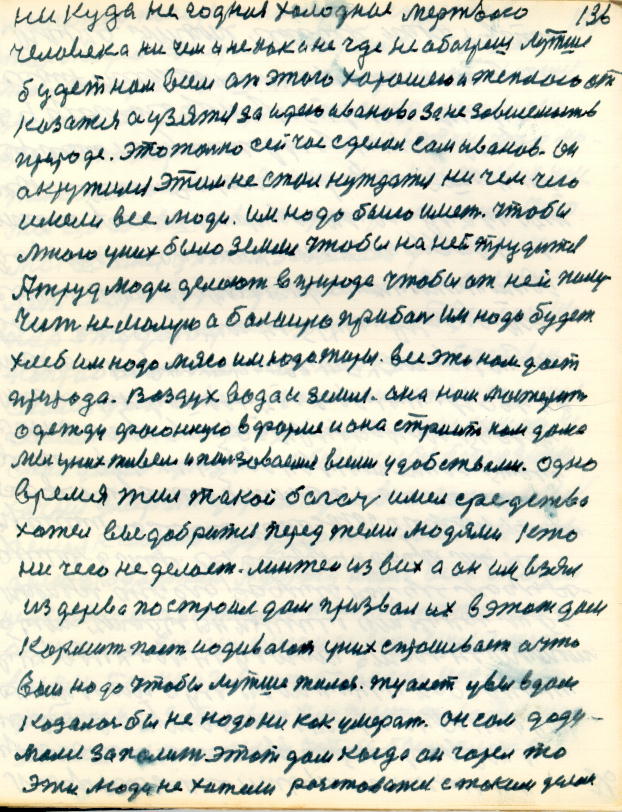 ни куда не годния холодные мертвого 136
человека ни чем и не пока не где не обогреш Лутше
будет нам всем от этого хорошего и теплого от
казатся а узятся за идею иванова за не зависемость
природе. Это только сей час сделал сам иванов. Он
окружился этим не стал нуждатся ни чем чего
имели все люди. им надо было имет. чтобы
много у них было земли чтобы на ней трудится
А труд люди делают в природе чтобы от ней полу
чит не малую а большую прибол им надо будет
хлеб им надо мясо им надо жиры. все это нам дает
природа. Воздух вода и земля. она нам
одежду фасонную в форме и она строит нам дома
мы у них живем и пользоваемся всеми удобствами. Одно
время жил такой богач имел средства
хотел выдобрится перед теми людями кто
ни чего не делает. лентяи из них а он им взял
из дерева построил дом призвал их в этот дом
Кормит поит и одивает у них спрашивает а что
вам надо чтобы лутше жилос. туалет увы в дом
казалос бы не надо ни как умерат. он сам дога-
мали запалит этот дом когда он горел то
эти люди не хотели роставатся с таким делом